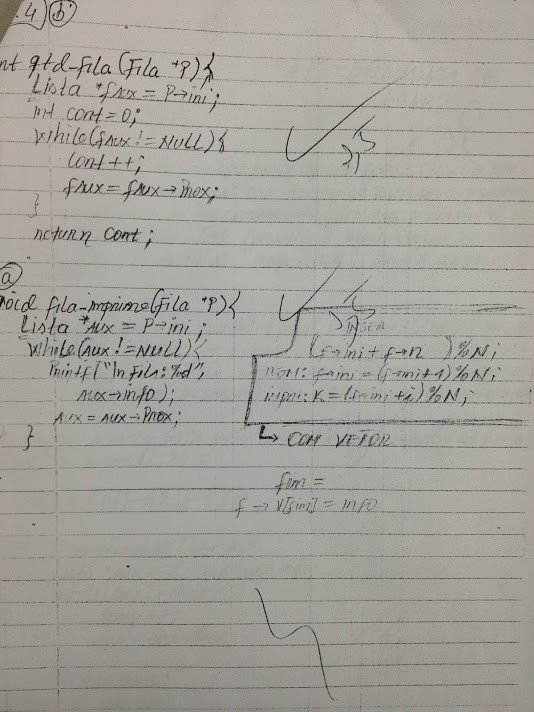 .4) b
nt qtd-fila(Fila *P){
Lista *fAux = P→ini;
int cont=0;
while(fAux!=NULL){
Cont++;
fAux=fAux→Prox;
}
return Cont;
a
void fila-imprime(fila *P){
Lista *Aux = P→ini;
while(Aux!=NULL){
printf("\n Fila:%d",
Aux→info);
Aux = Aux→Prox;
}
(f→ini+f→n )%N;
f→ini=(f→ini+1)%N;
K=(f→ini+i)%N;
↳ COM VETOR
fim =
f→V[fim]=info